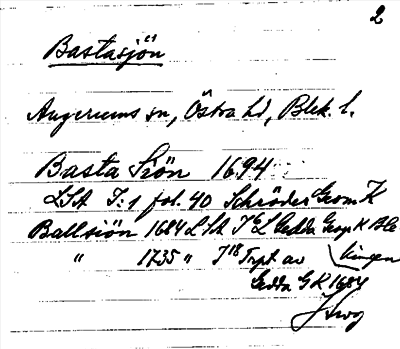 2
Bastasjön
Augerums sn, Östra hd, Blek. l.
Basta Siön 1694
LSA I:1 fol. 40 Schröder Geom K
Ballsiön 1684 LSA Gedda Geogr K Ble
" 1735 " av kingen
Gedda GK 1684